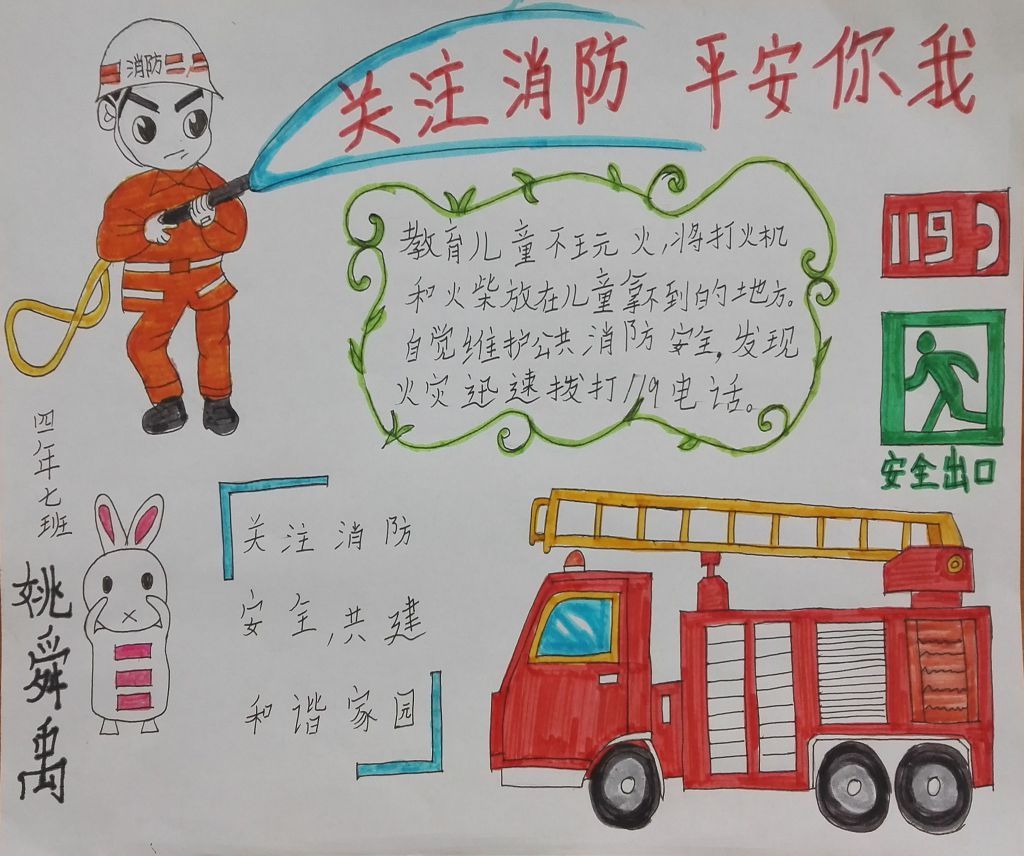 消防
关注消防 平安你我
教育儿童不玩火,将打火机
和火柴放在儿童拿不到的地方。
自觉维护公共消防安全,发现
火灾迅速拨打119电话。
119
安全出口
四年七班
姚舜禹
关注消防
安全,共建
和谐家园